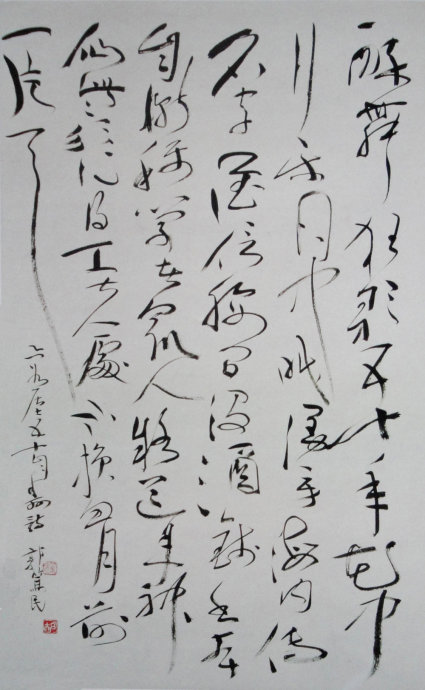 醉舞狂歌五十年花中
行乐月中眠漫劳海内傳
名字谁信腰间没酒錢書本
自慚稱學者眾人疑道是神
仙些須做得工夫處不損胸前
一片天
六如居士五十自壽詩
民